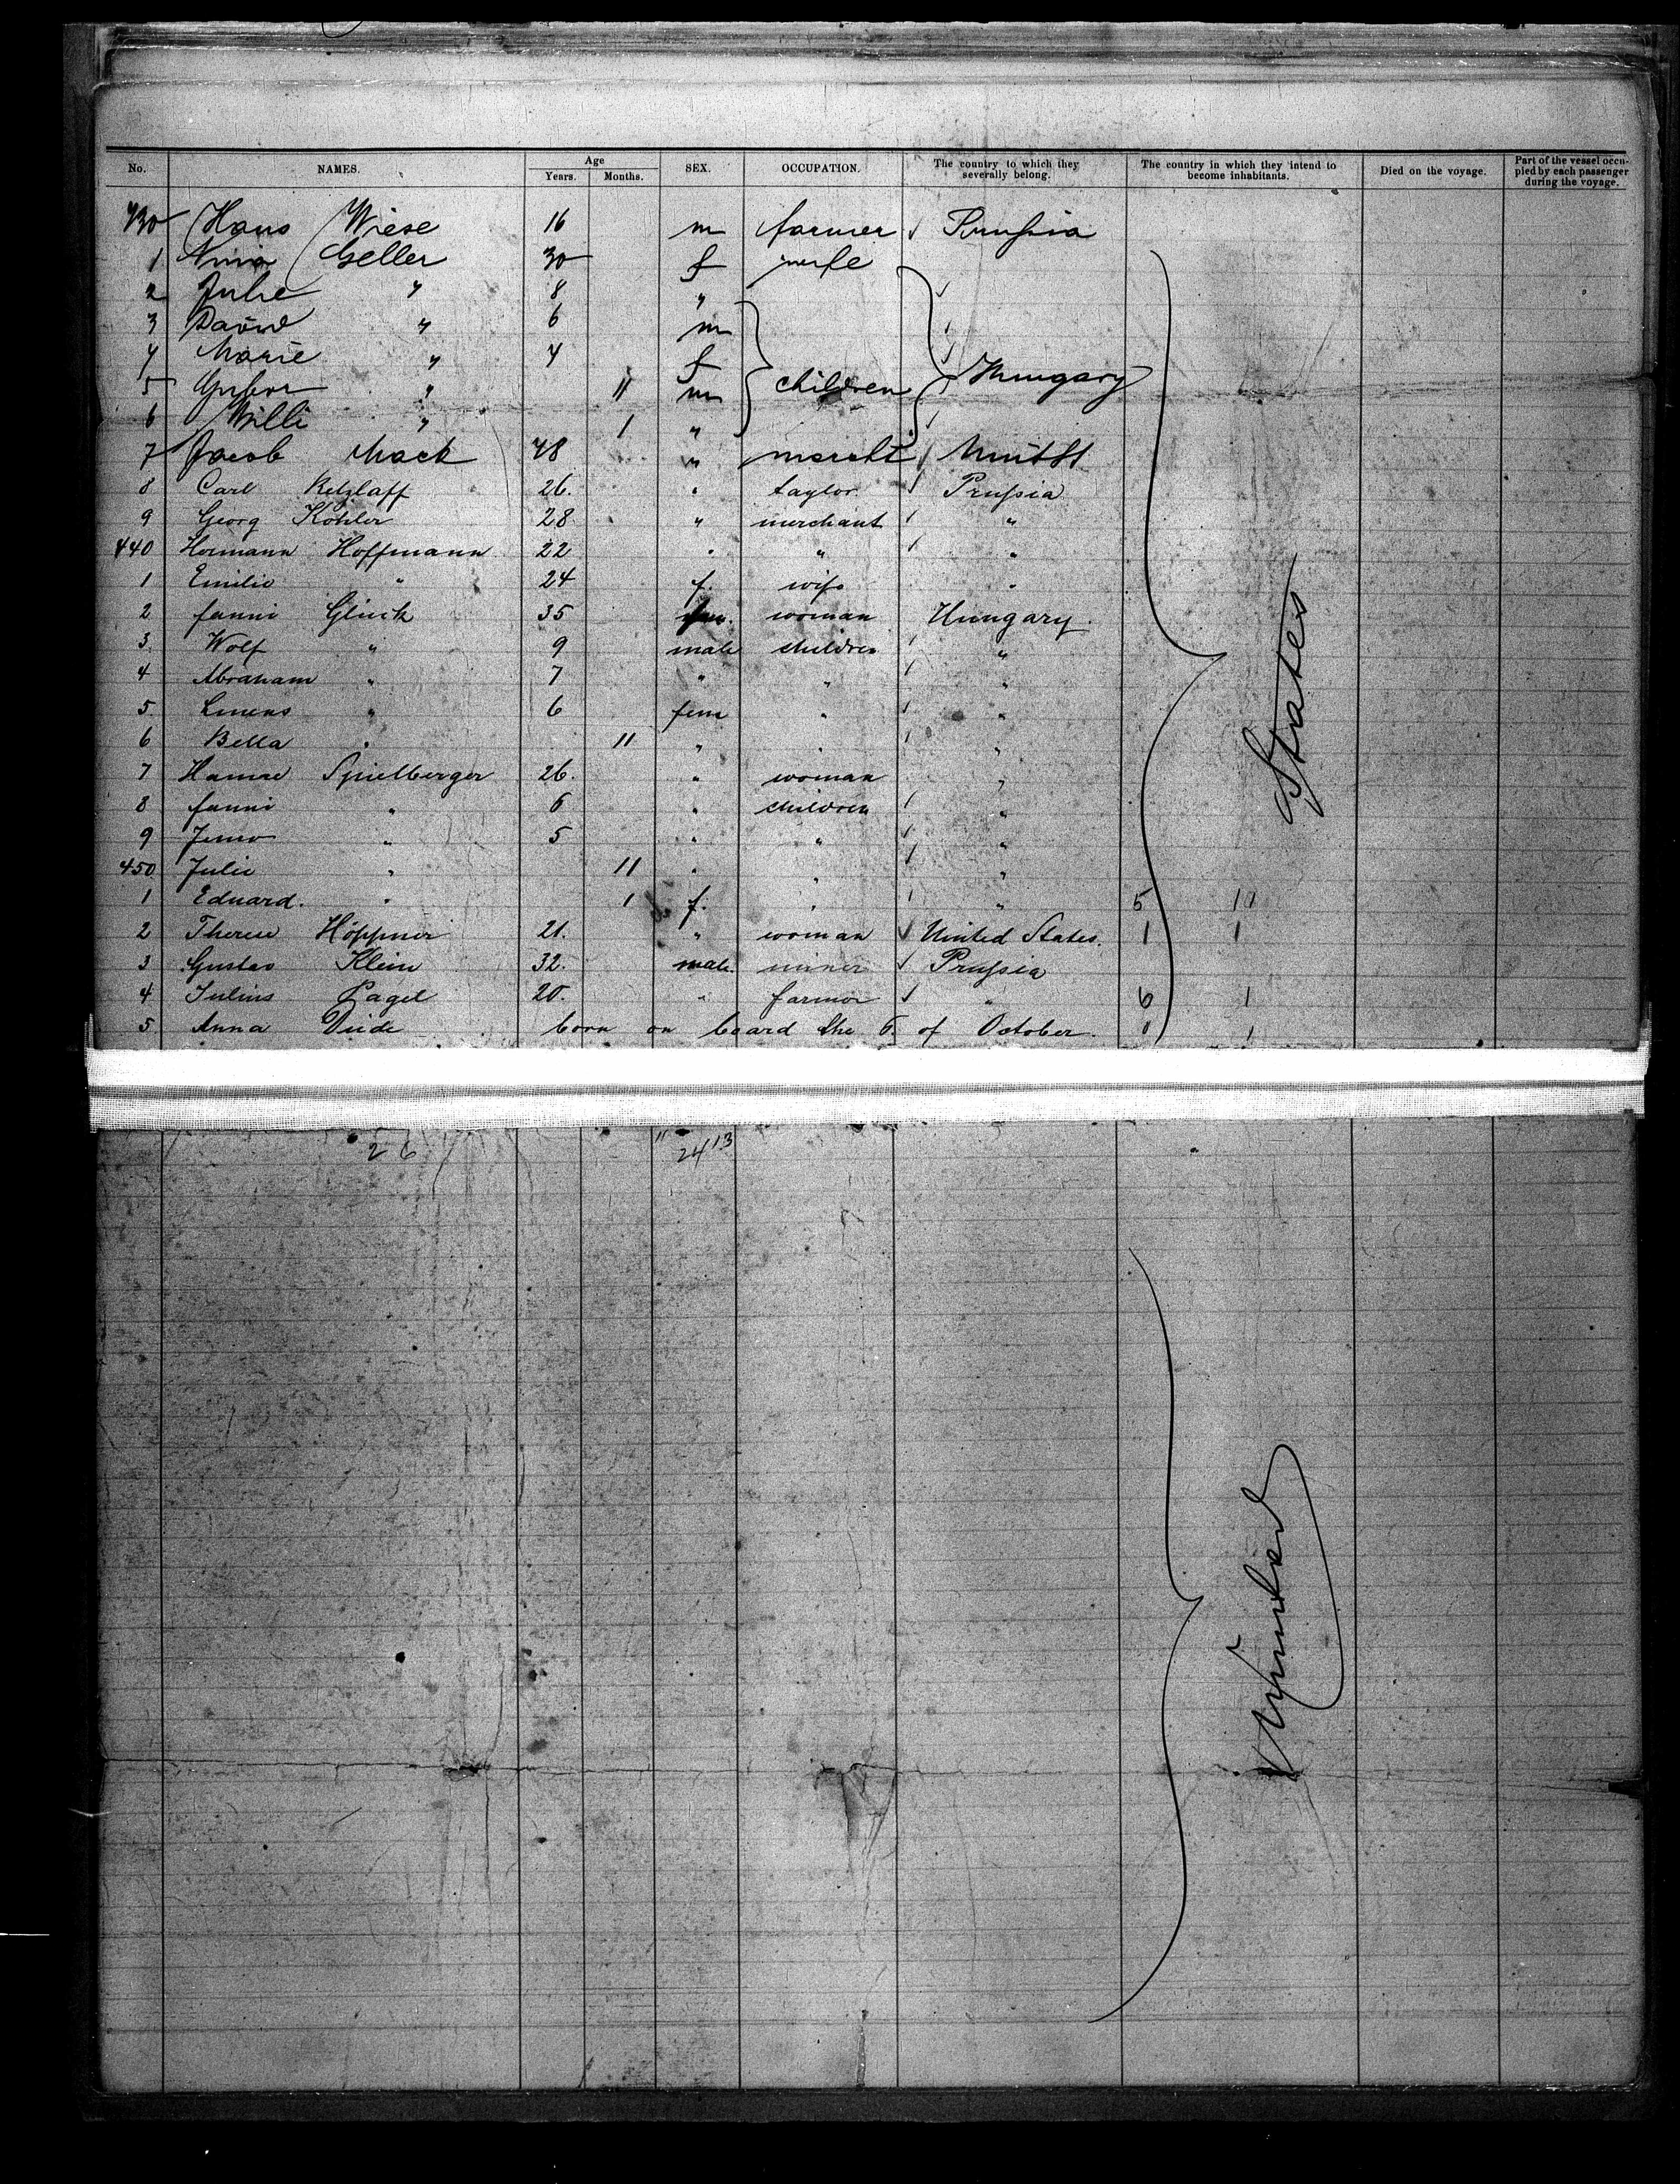 No. NAMES. Age Years. Months. SEX. OCCUPATION. The country to which they severally belong. The country in which they intend to become inhabitants. Died on the voyage. Part of the vessel occupied by each passenger during the voyage.
430 Hans Wiese 16 m farmer Prußia
1 Nina Geller 30 f wife
2 Julie " 8 "
3 David " 6 m
4 Marie " 4 f
5 " 11 m children Hungary
6 Willi " 1 "
7 Jacob Mack 48 " mercht Unit St
8 Carl Retzlaff 26. " taylor Prußia
9 Georg Köhler 28 " merchant "
440 Hermann Hoffmann 22 " " "
1 Emilie " 24 f. wife "
2 fanni Glück 35 fem. woman Hungary.
3. Wolf " 9 male children "
4 Abraham " 7 " " "
5. " 6 fem " "
6 Bella " 11 " " "
7 Spielberger 26. " woman "
8 fanni " 6 " children "
9 " 5 " " "
450 Julie " 11 " " "
1 Eduard. " 1 f. " " 5 11
2 Therese Höppner 21. " woman United States. 1 1
3 Gustav Klein 32. male. miner Prußia
4 Julius Pagel 20. " farmer " 6 1
5. Anna born on board the 6. of October. 1
States
26 11 24 13
United